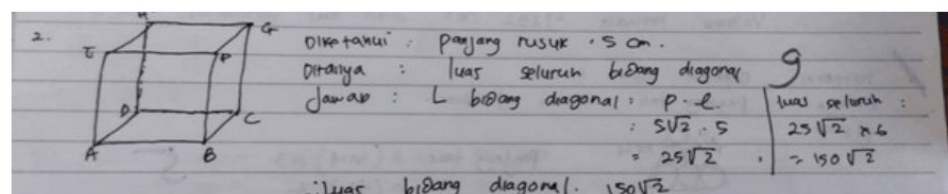 2.
H G
E F
D C
A B
Diketahui : panjang rusuk . 5 cm.
Ditanya : luas seluruh bidang diagonal
Jawab : L bidang diagonal : p . l
: 5√2 . 5
= 25√2 .
luas seluruh :
25√2 x 6
= 150√2
9
: luas bidang diagonal . 150√2